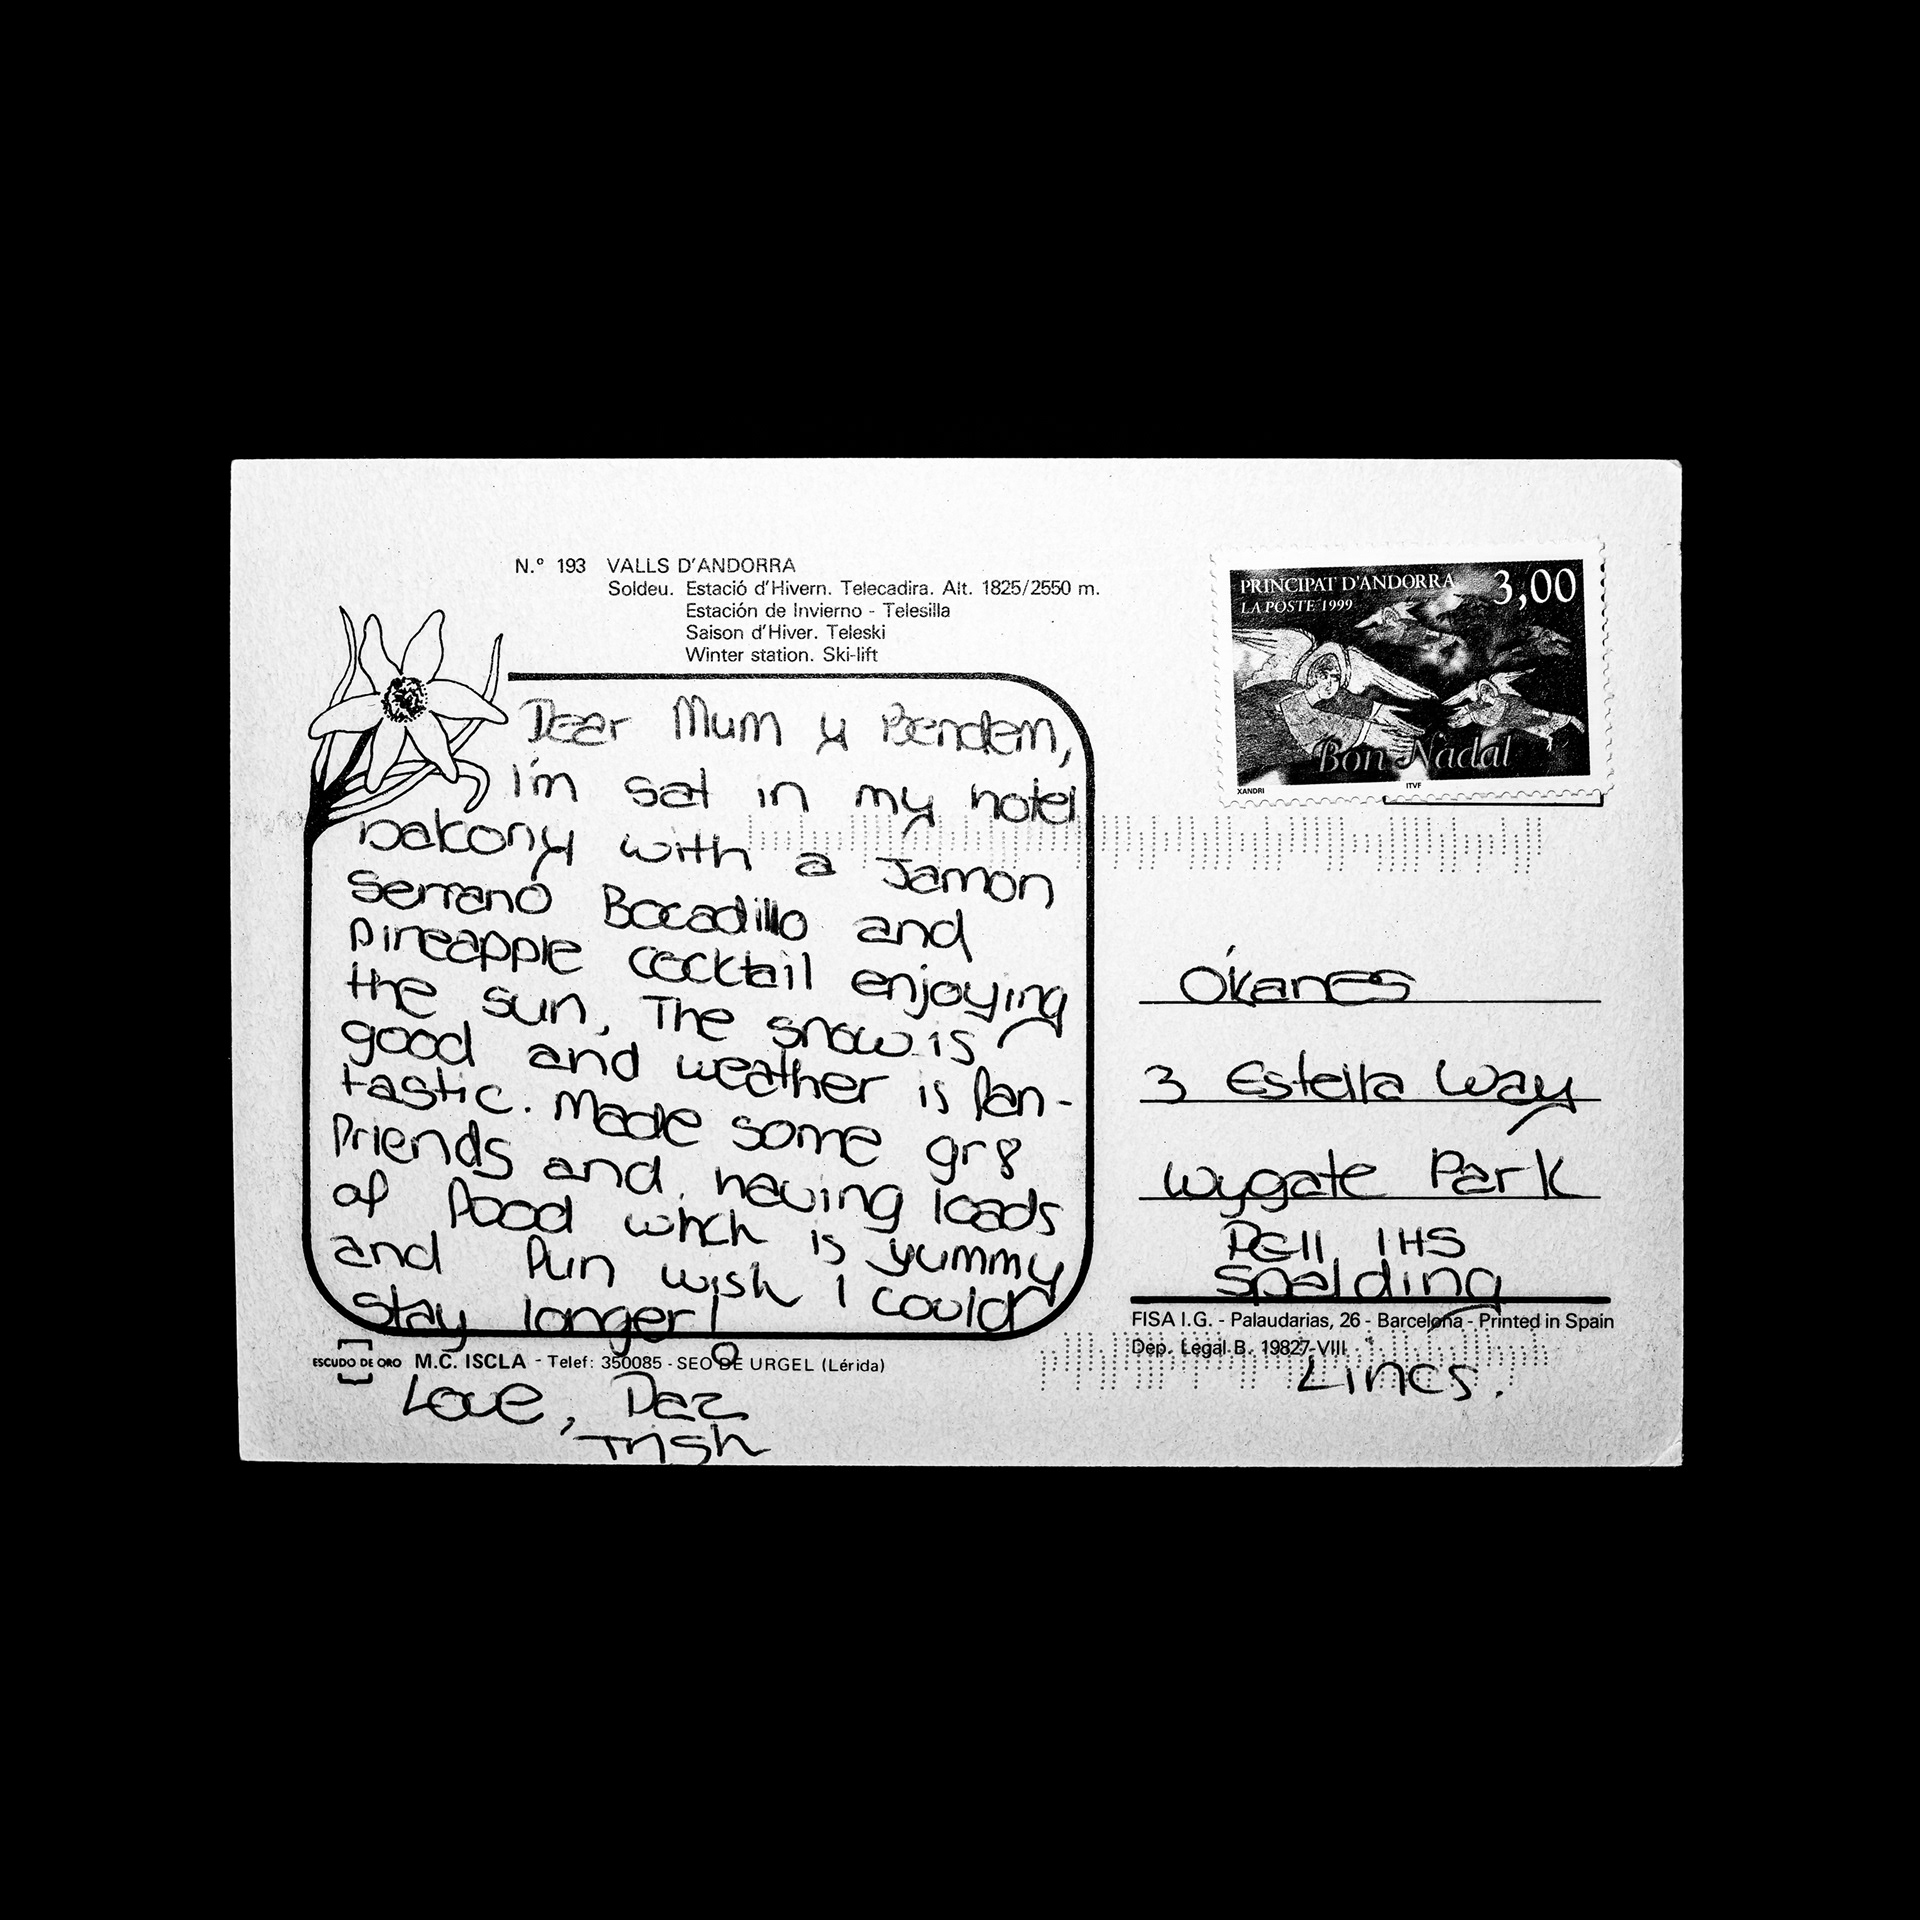 N.º 193 VALLS D'ANDORRA
Soldeu. Estació d'Hivern. Telecadira. Alt. 1825/2550 m.
Estación de Invierno - Telesilla
Saison d'Hiver. Teleski
Winter station. Ski-lift
PRINCIPAT D'ANDORRA 3,00
LA POSTE 1999
Bon Nadal
XANDRI ITVF
Dear Mum y
I'm sat in my hotel
balcony with a Jamon
Serrano Bocadillo and
Pineapple cocktail enjoying
the sun. The snow is
good and weather is fan-
tastic. Made some gr8
friends and having loads
of food which is yummy
and fun wish I could
stay longer!
Love, Daz
Trish
O'Kanes
3 Estella Way
Wygate Park
PE11 1HS
Spalding
Lincs.
FISA I.G. - Palaudarias, 26 - Barcelona - Printed in Spain
Dep. Legal B. 19827-VIII
ESCUDO DE ORO M.C. ISCLA - Telef: 350085 - SEO DE URGEL (Lérida)